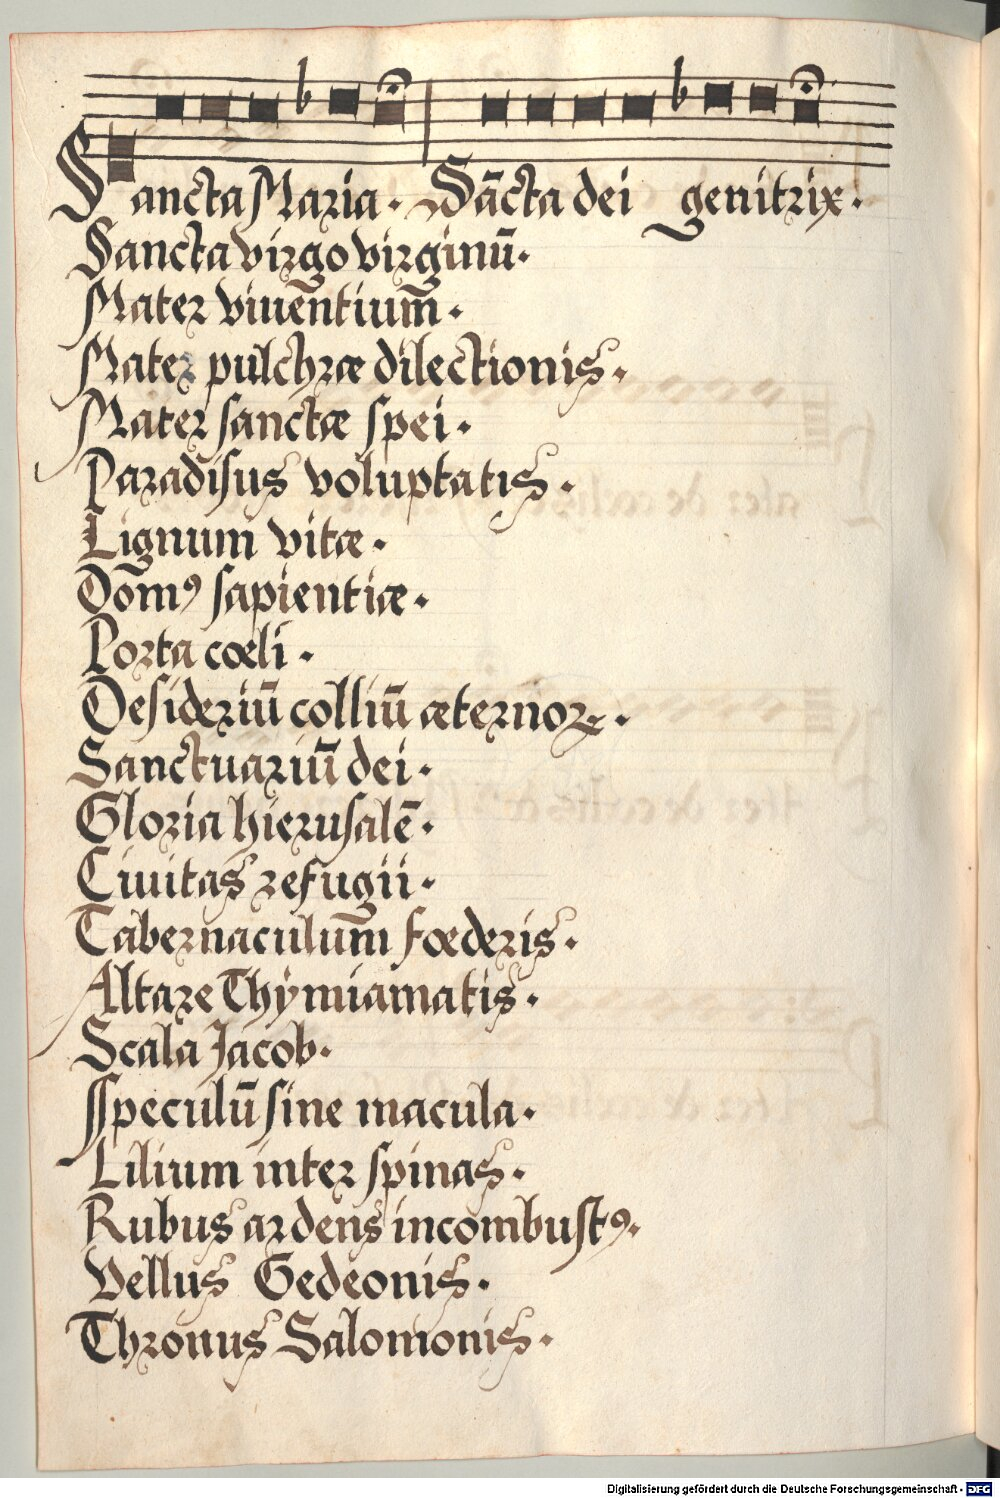 Sancta Maria. Sācta dei genitrix.
Sancta virgo virginū.
Mater viuentium.
Mater pulchræ dilectionis.
Mater sanctæ spei.
Paradisus voluptatis.
Lignum vitæ.
Domꝰ sapientiæ.
Porta cœli.
Desideriū colliū æternoꝝ.
Sanctuariū dei.
Gloria hierusalē.
Ciuitas refugii.
Tabernaculum fœderis.
Altare Thymiamatis.
Scala Jacob.
Speculū sine macula.
Lilium inter spinas.
Rubus ardens incombustꝰ.
Vellus Gedeonis.
Thronus Salomonis.
Digitalisierung gefördert durch die Deutsche Forschungsgemeinschaft - DFG